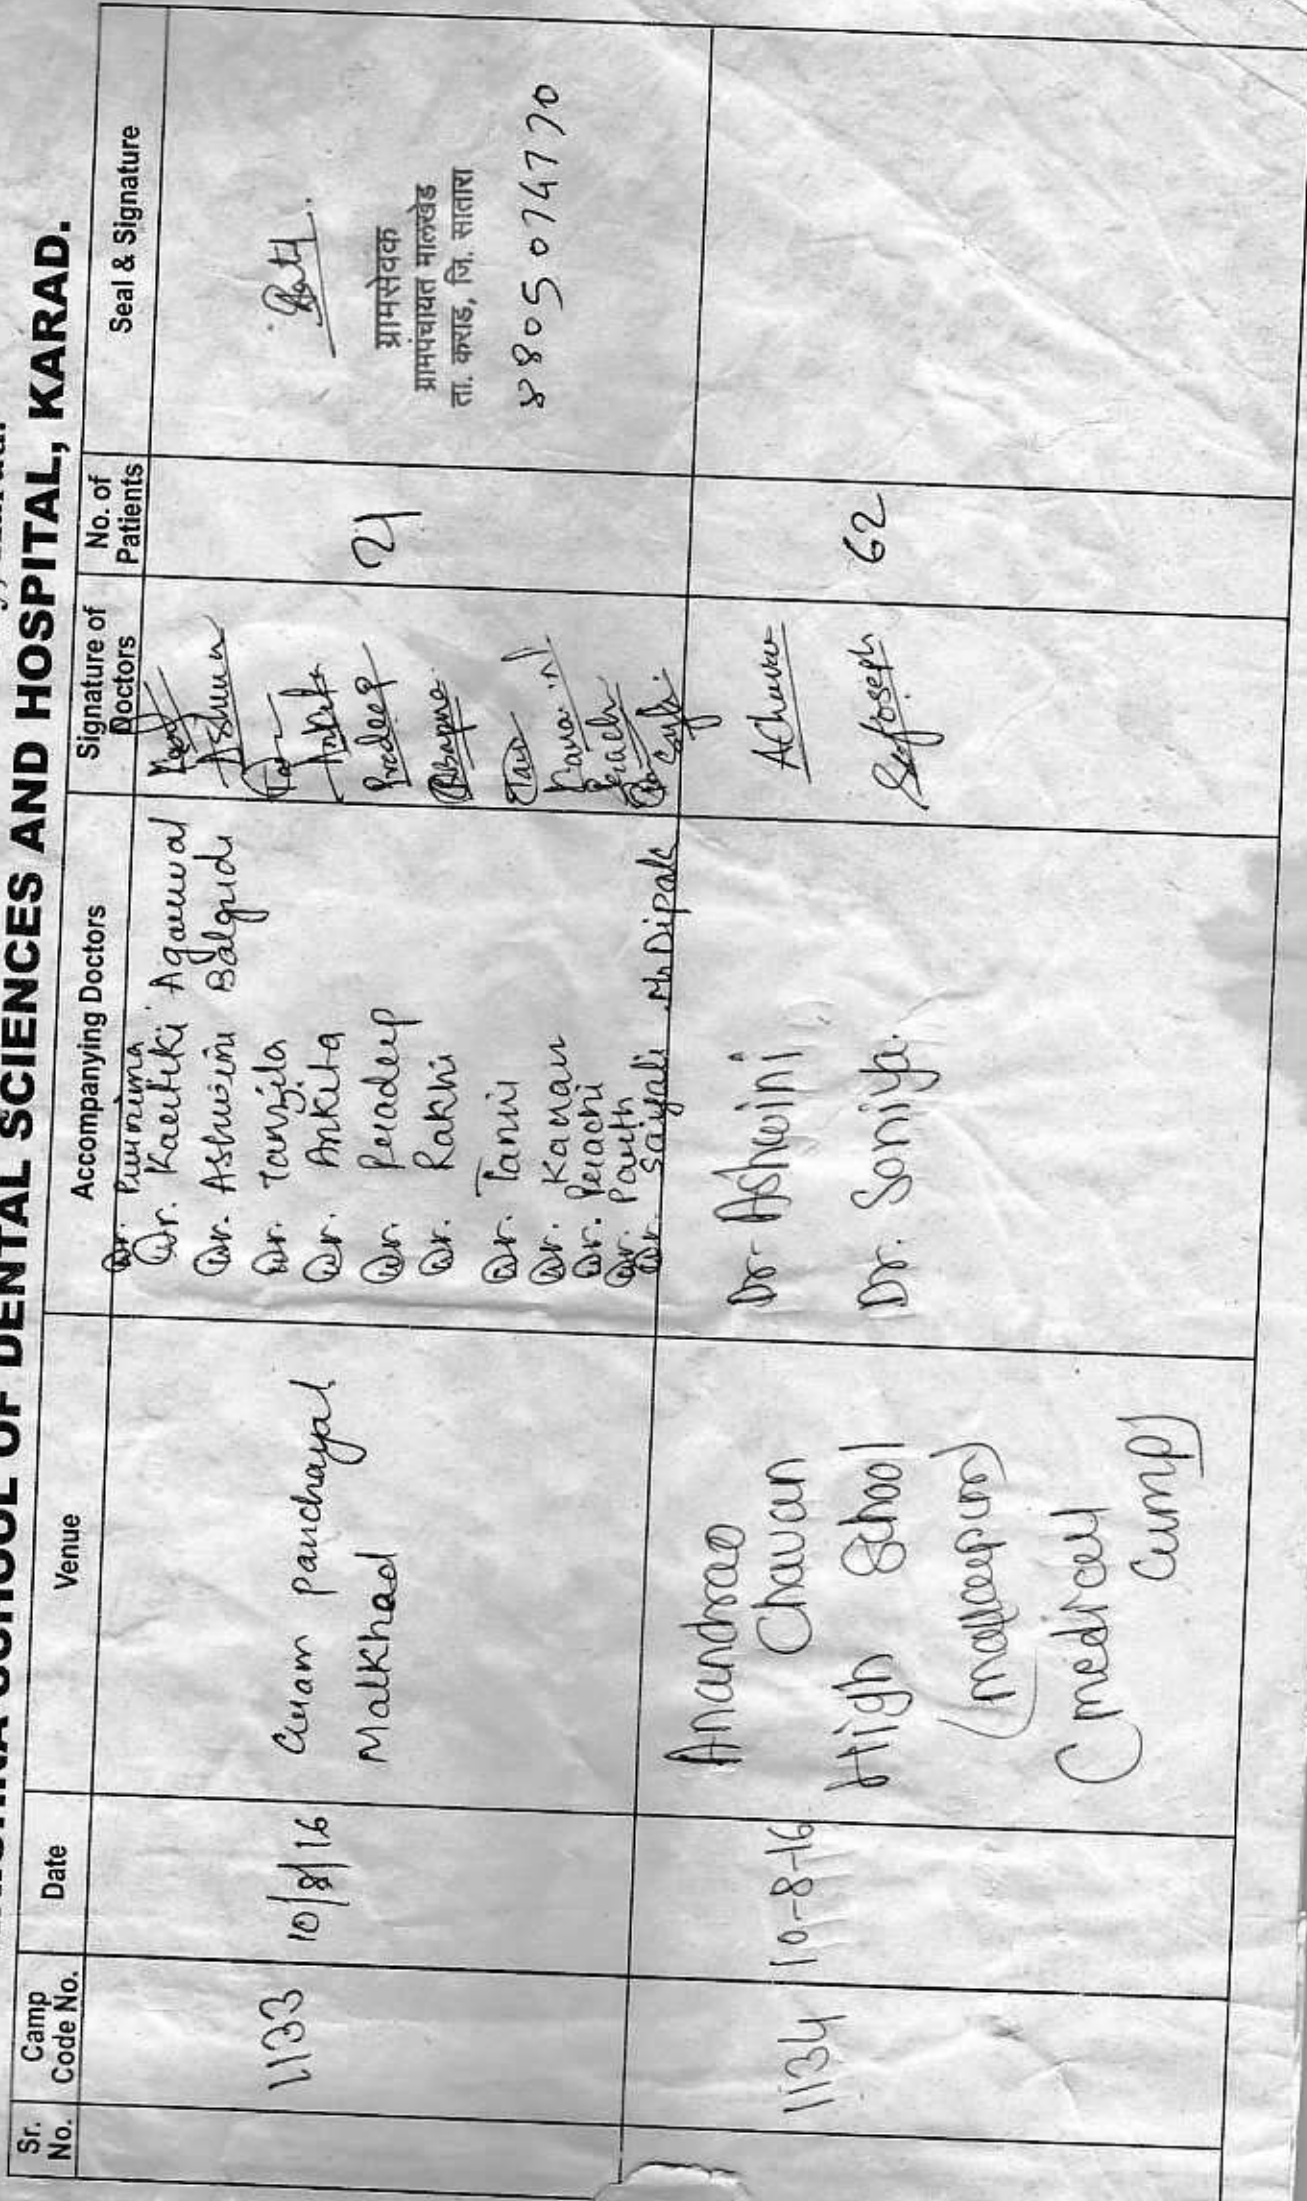 SCHOOL OF DENTAL SCIENCES AND HOSPITAL, KARAD.
Sr. No.
Camp Code No.
Date
Venue
Accompanying Doctors
Signature of Doctors
No. of Patients
Seal & Signature
1133
10/8/16
Gram panchayat
Malkhad
Dr. Purnima
Dr. Kartiki Agarwal
Dr. Ashwini Balgude
Dr. Tanzila
Dr. Ankita
Dr. Pradeep
Dr. Rakhi
Dr. Tanvi
Dr. Kanan
Dr. Prachi
Dr. Parth
Dr. Saiyali Mr Dipak
Ashwin
Ankita
Pradeep
Prachi
21
ग्रामसेवक
ग्रामपंचायत मालखेड
ता. कराड, जि. सातारा
8805074770
1134
10-8-16
Anandrao
Chavan
High School
(Malkapur)
(medical
camp)
Dr Ashwini
Dr. Soniya.
AChavan
Joseph
62